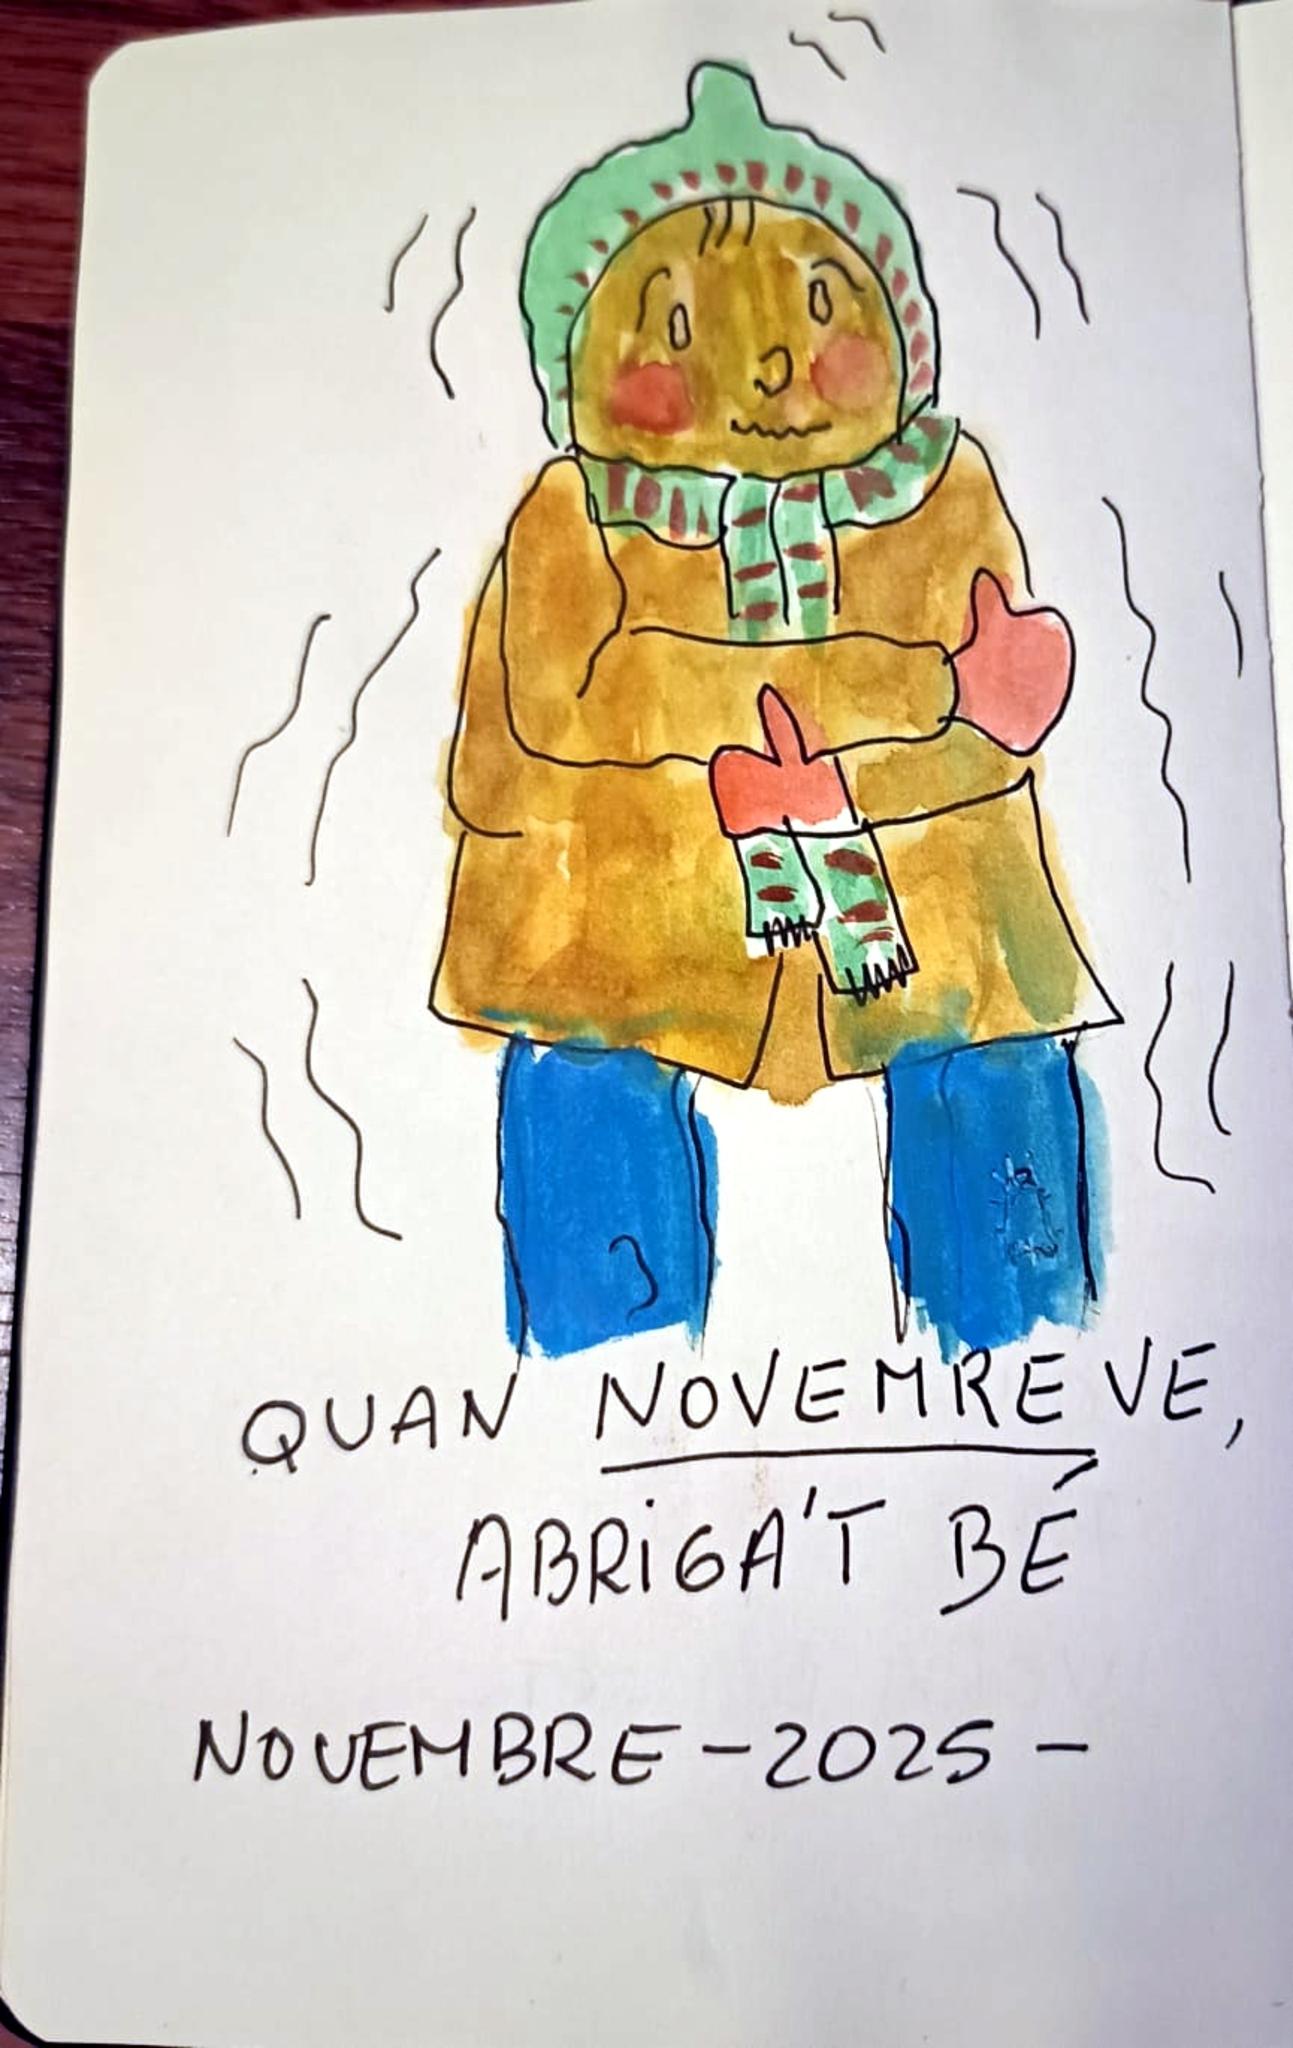 QUAN NOVEMRE VE,
ABRIGA'T BÉ
NOVEMBRE - 2025 -